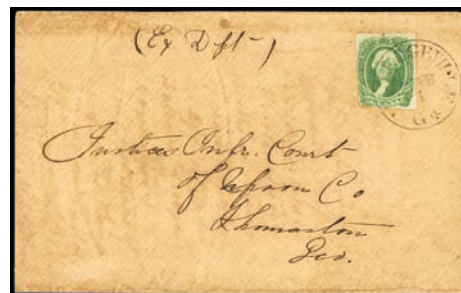 (Ex Dft-)
GEVILLE
Ga
Justices Infr. Court
of Upson Co
Thomaston
Geo.